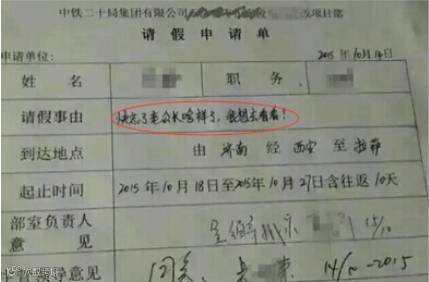 中铁二十局集团有限公司 改项目部
请假申请单
申请单位: 2015年10月14日
姓名 职务
请假事由 快忘了老公长啥样了,我想去看看!
到达地点 由 济南 经 西安 至 拉萨
起止时间 2015年10月18日至2015年10月27日含往返10天
部室负责人
意见 15/10
领导意见 同意、 14/10-2015